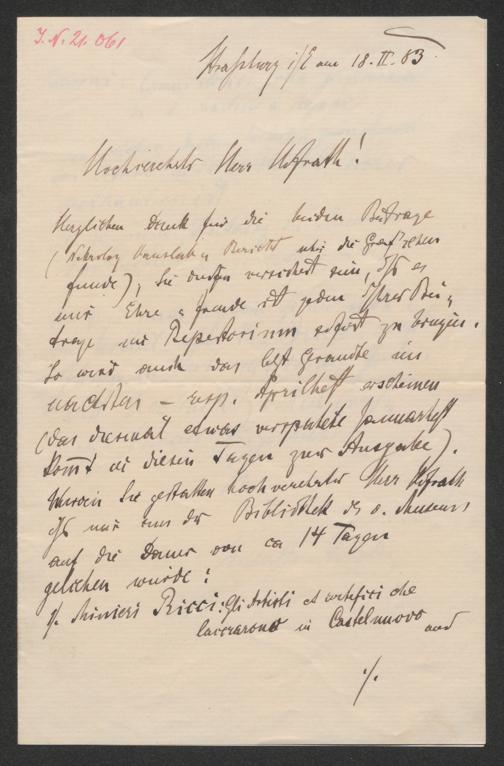 I. N. 21. 061
Straßburg i/E am 18. II. 83.
Hochverehrter Herr Hofrath!
Herzlichen Dank für die beiden Beiträge
(Nekrolog u Bericht über die
funde), Sie dürfen versichert sein, daß es
mir Ehre u freude ist jeden Ihrer Bei-
träge im Repertorium sofort zu bringen.
So wird auch das letzt Gesandte im
nächsten – resp. Aprilheft erscheinen
(das diesmal etwas verspätete Januarheft
komt in diesen Tagen zur Ausgabe).
Sie gestatten hochverehrter Herr Hofrath
daß mir aus der Bibliothek des ö. Museums
auf die Dauer von ca 14 Tagen
geliehen würde:
Minieri Ricci: Gli Artisti ed artefici che
lavorarono in Castelnuovo and
./.